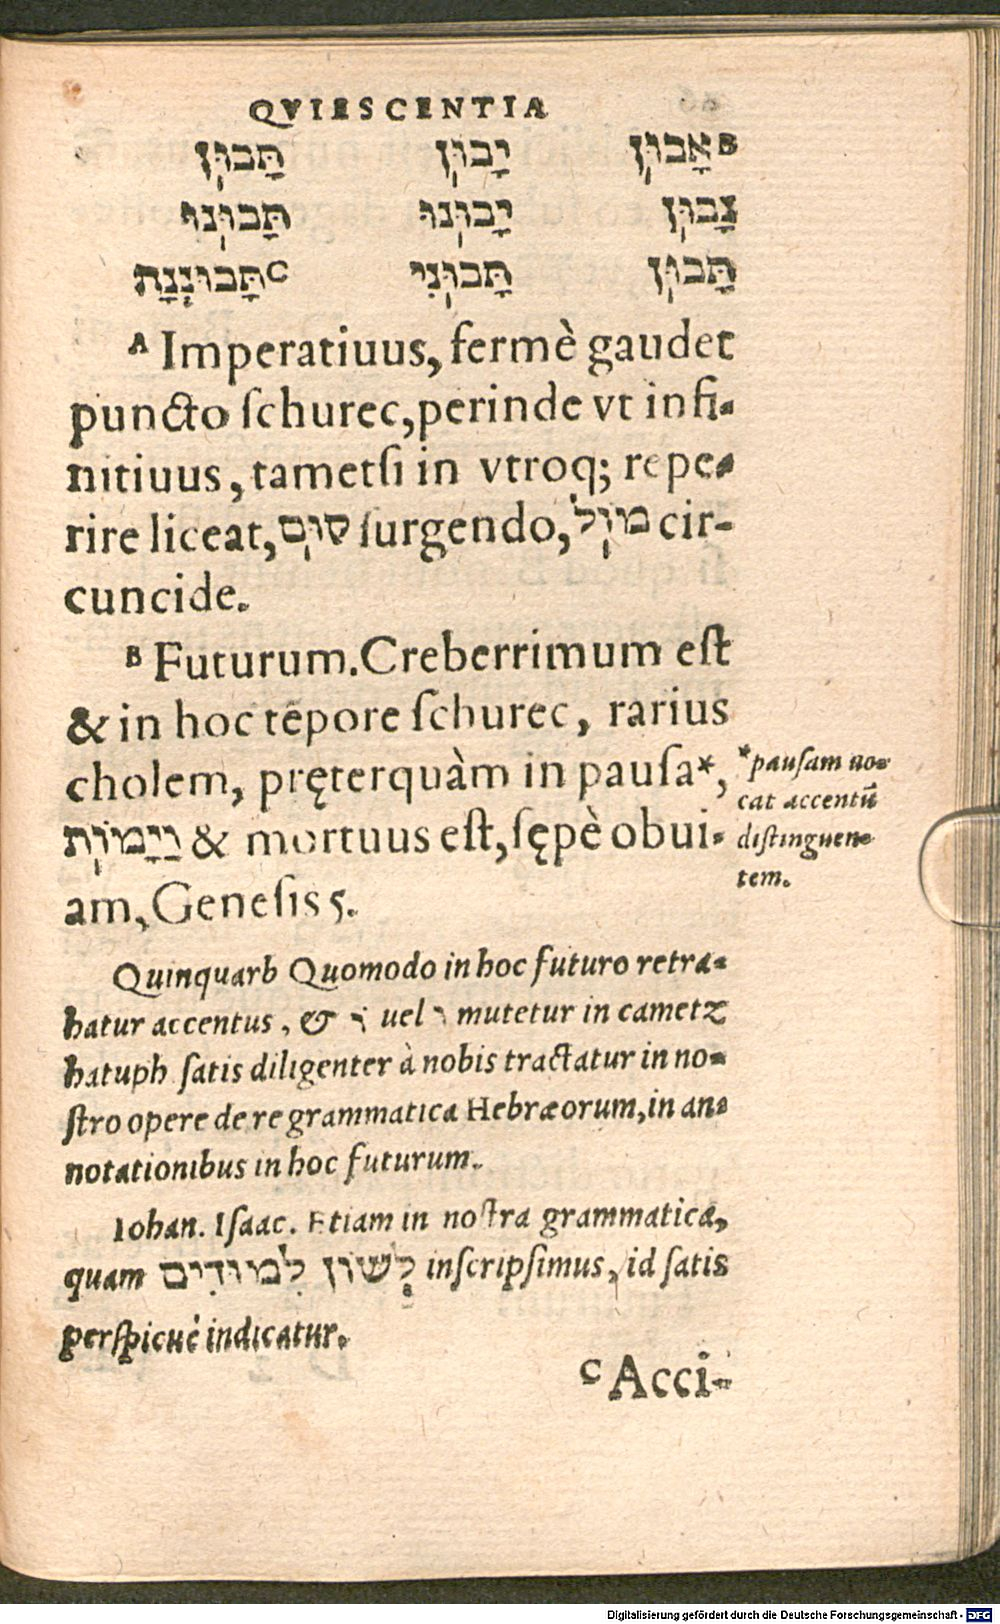 QVIESCENTIA
B אָבוּן יָבוּן תָּבוּן
נָבוּן יָבוּנוּ תָּבוּנוּ
תָּבוּן תָּבוּנִי C תָּבוּנֶנָה
A Imperatiuus, fermè gaudet
puncto ſchurec, perinde vt infi-
nitiuus, tametſi in vtroq; repe-
rire liceat, קוּם ſurgendo, מוּל cir-
cuncide.
B Futurum. Creberrimum eſt
& in hoc tēpore ſchurec, rarius
cholem, pręterquàm in pauſa*,
וַיָּמוֹת & mortuus eſt, ſępè obui-
am, Geneſis 5.
*pauſam no-
cat accentū
diſtinguen-
tem.
Quinquarb Quomodo in hoc futuro retra-
hatur accentus, & וֹ uel וּ mutetur in cametz
hatuph ſatis diligenter à nobis tractatur in no-
ſtro opere de re grammatica Hebræorum, in an-
notationibus in hoc futurum.
Iohan. Iſaac. Etiam in noſtra grammatica,
quam לָשׁוֹן לִמוּדִים inſcripſimus, id ſatis
perſpicuè indicatur.
C Acci-
Digitalisierung gefördert durch die Deutsche Forschungsgemeinschaft - DFG